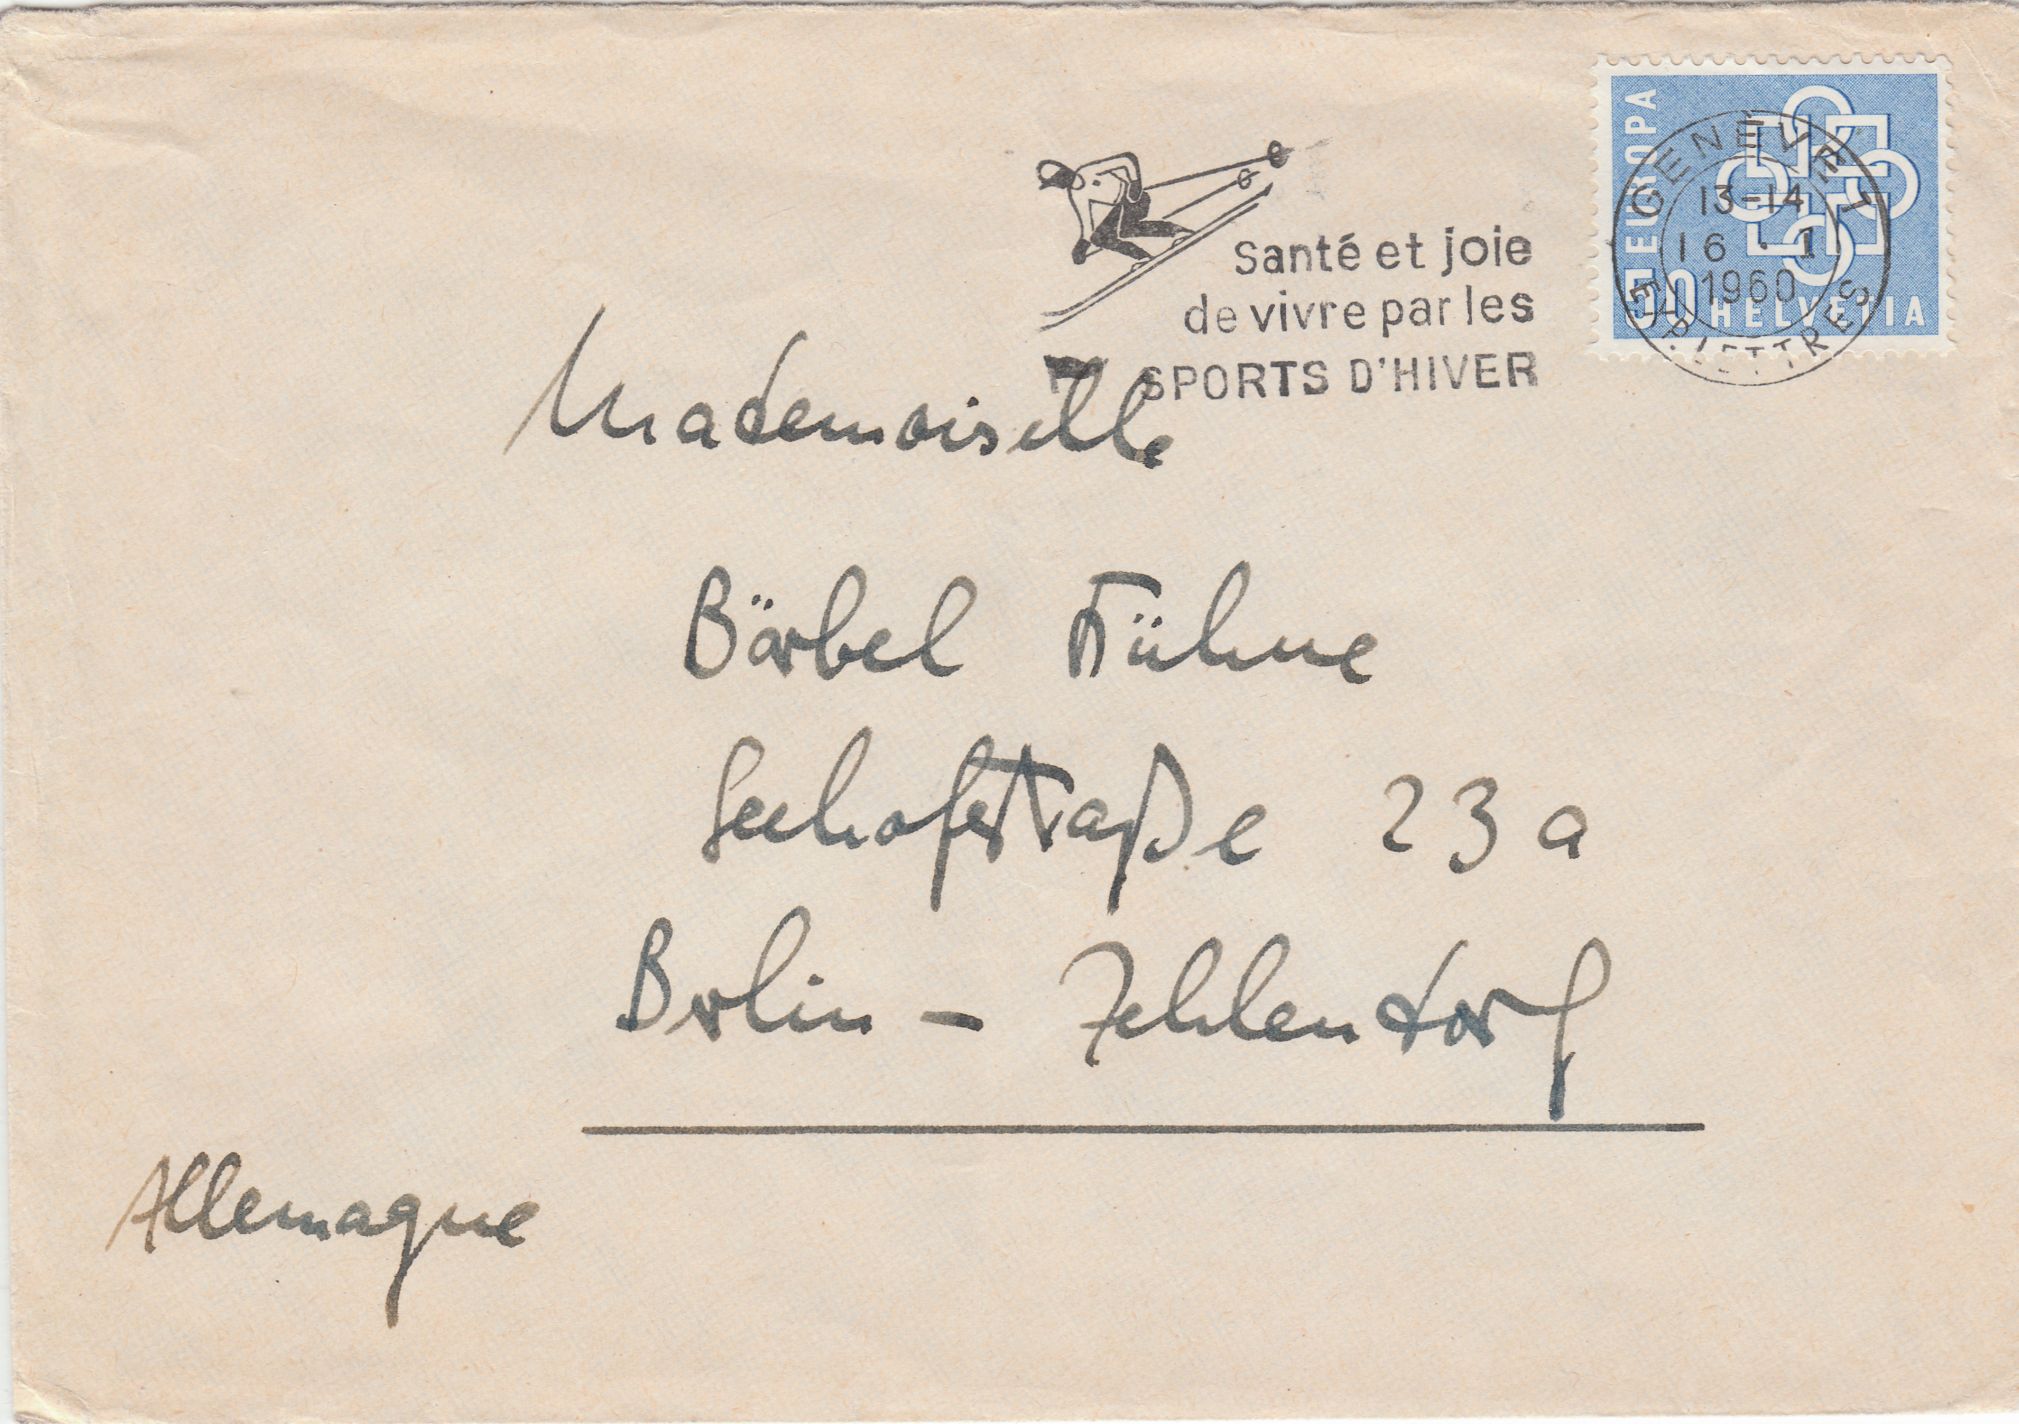 EUROPA
50 HELVETIA
GENÈVE 1
13-14
16.1
1960
EXP. LETTRES
Santé et joie
de vivre par les
SPORTS D'HIVER
Mademoiselle
Bärbel
Seehofstraße 23a
Berlin - Zehlendorf
Allemagne